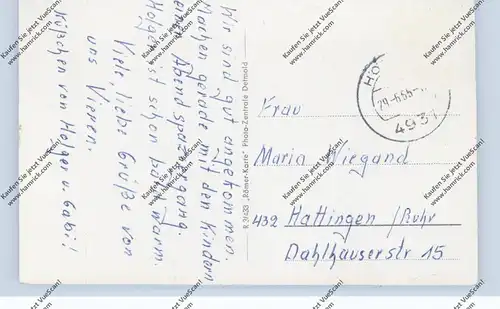 Wir sind gut angekommen.
Machen gerade mit den Kindern
einen Abendspaziergang.
Holger ist schon
Viele, liebe Grüße von
uns Vieren.
Küßchen von Holger u. Gabi!
R 31633 „Römer-Karte" Photo-Zentrale Detmold
29.-6.65-
493
Frau
Maria Wiegand
432 Hattingen/Ruhr
Dahlhauserstr 15
Kaufen Sie jetzt VueScan!
www.hamrick.com